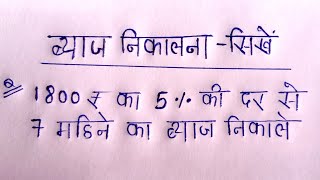 ब्याज निकालना - सिखें
Q 1800 ₹ का 5% की दर से
7 महिने का ब्याज निकाले